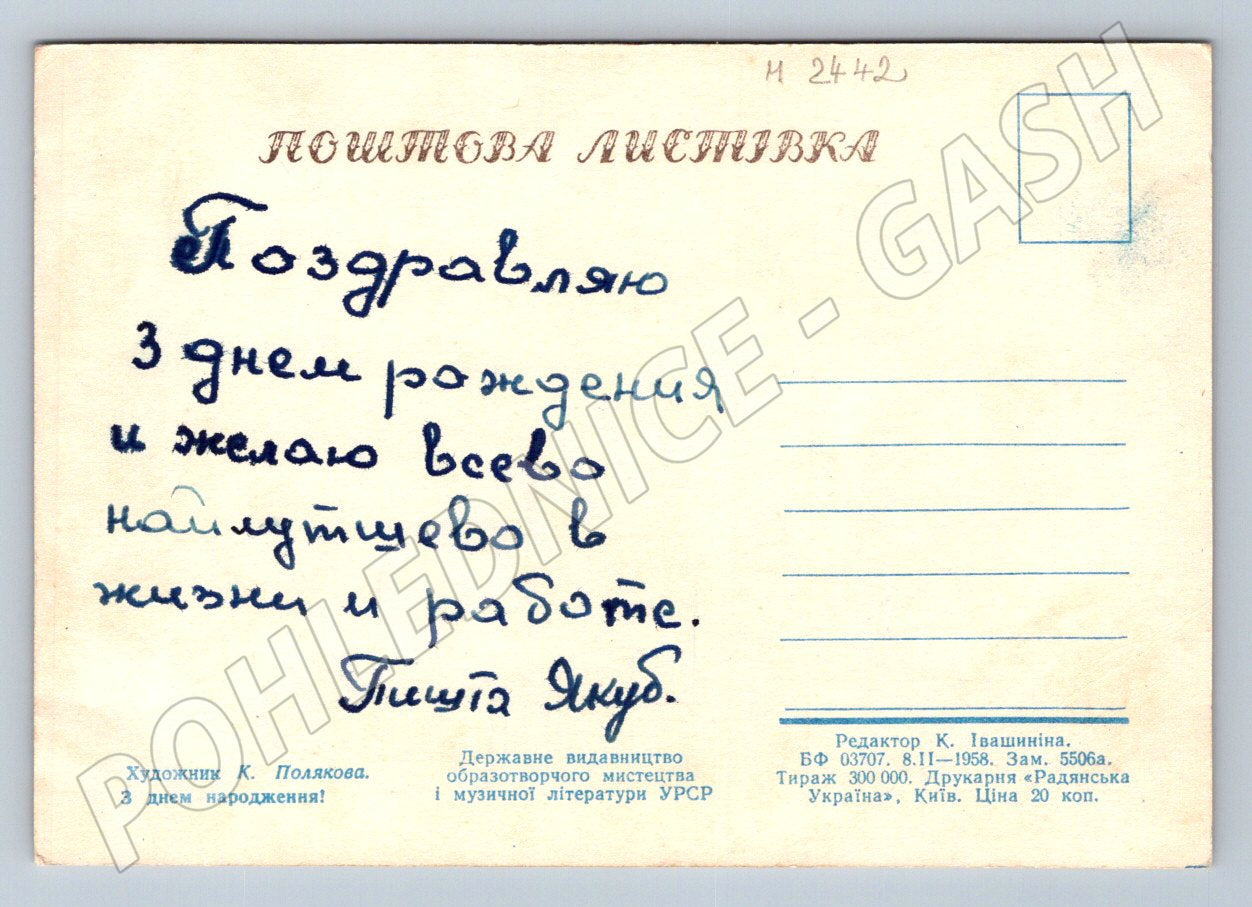 м 2442
ПОШТОВА ЛИСТІВКА
Поздравляю
З днем рождения
и желаю всево
найлутшево в
жизни и работе.
Пишта Якуб.
Художник К. Полякова.
З днем народження!
Державне видавництво
образотворчого мистецтва
і музичної літератури УРСР
Редактор К. Івашиніна.
БФ 03707. 8.II—1958. Зам. 5506а.
Тираж 300 000. Друкарня «Радянська
Україна», Київ. Ціна 20 коп.
POHLEDNICE - GASH